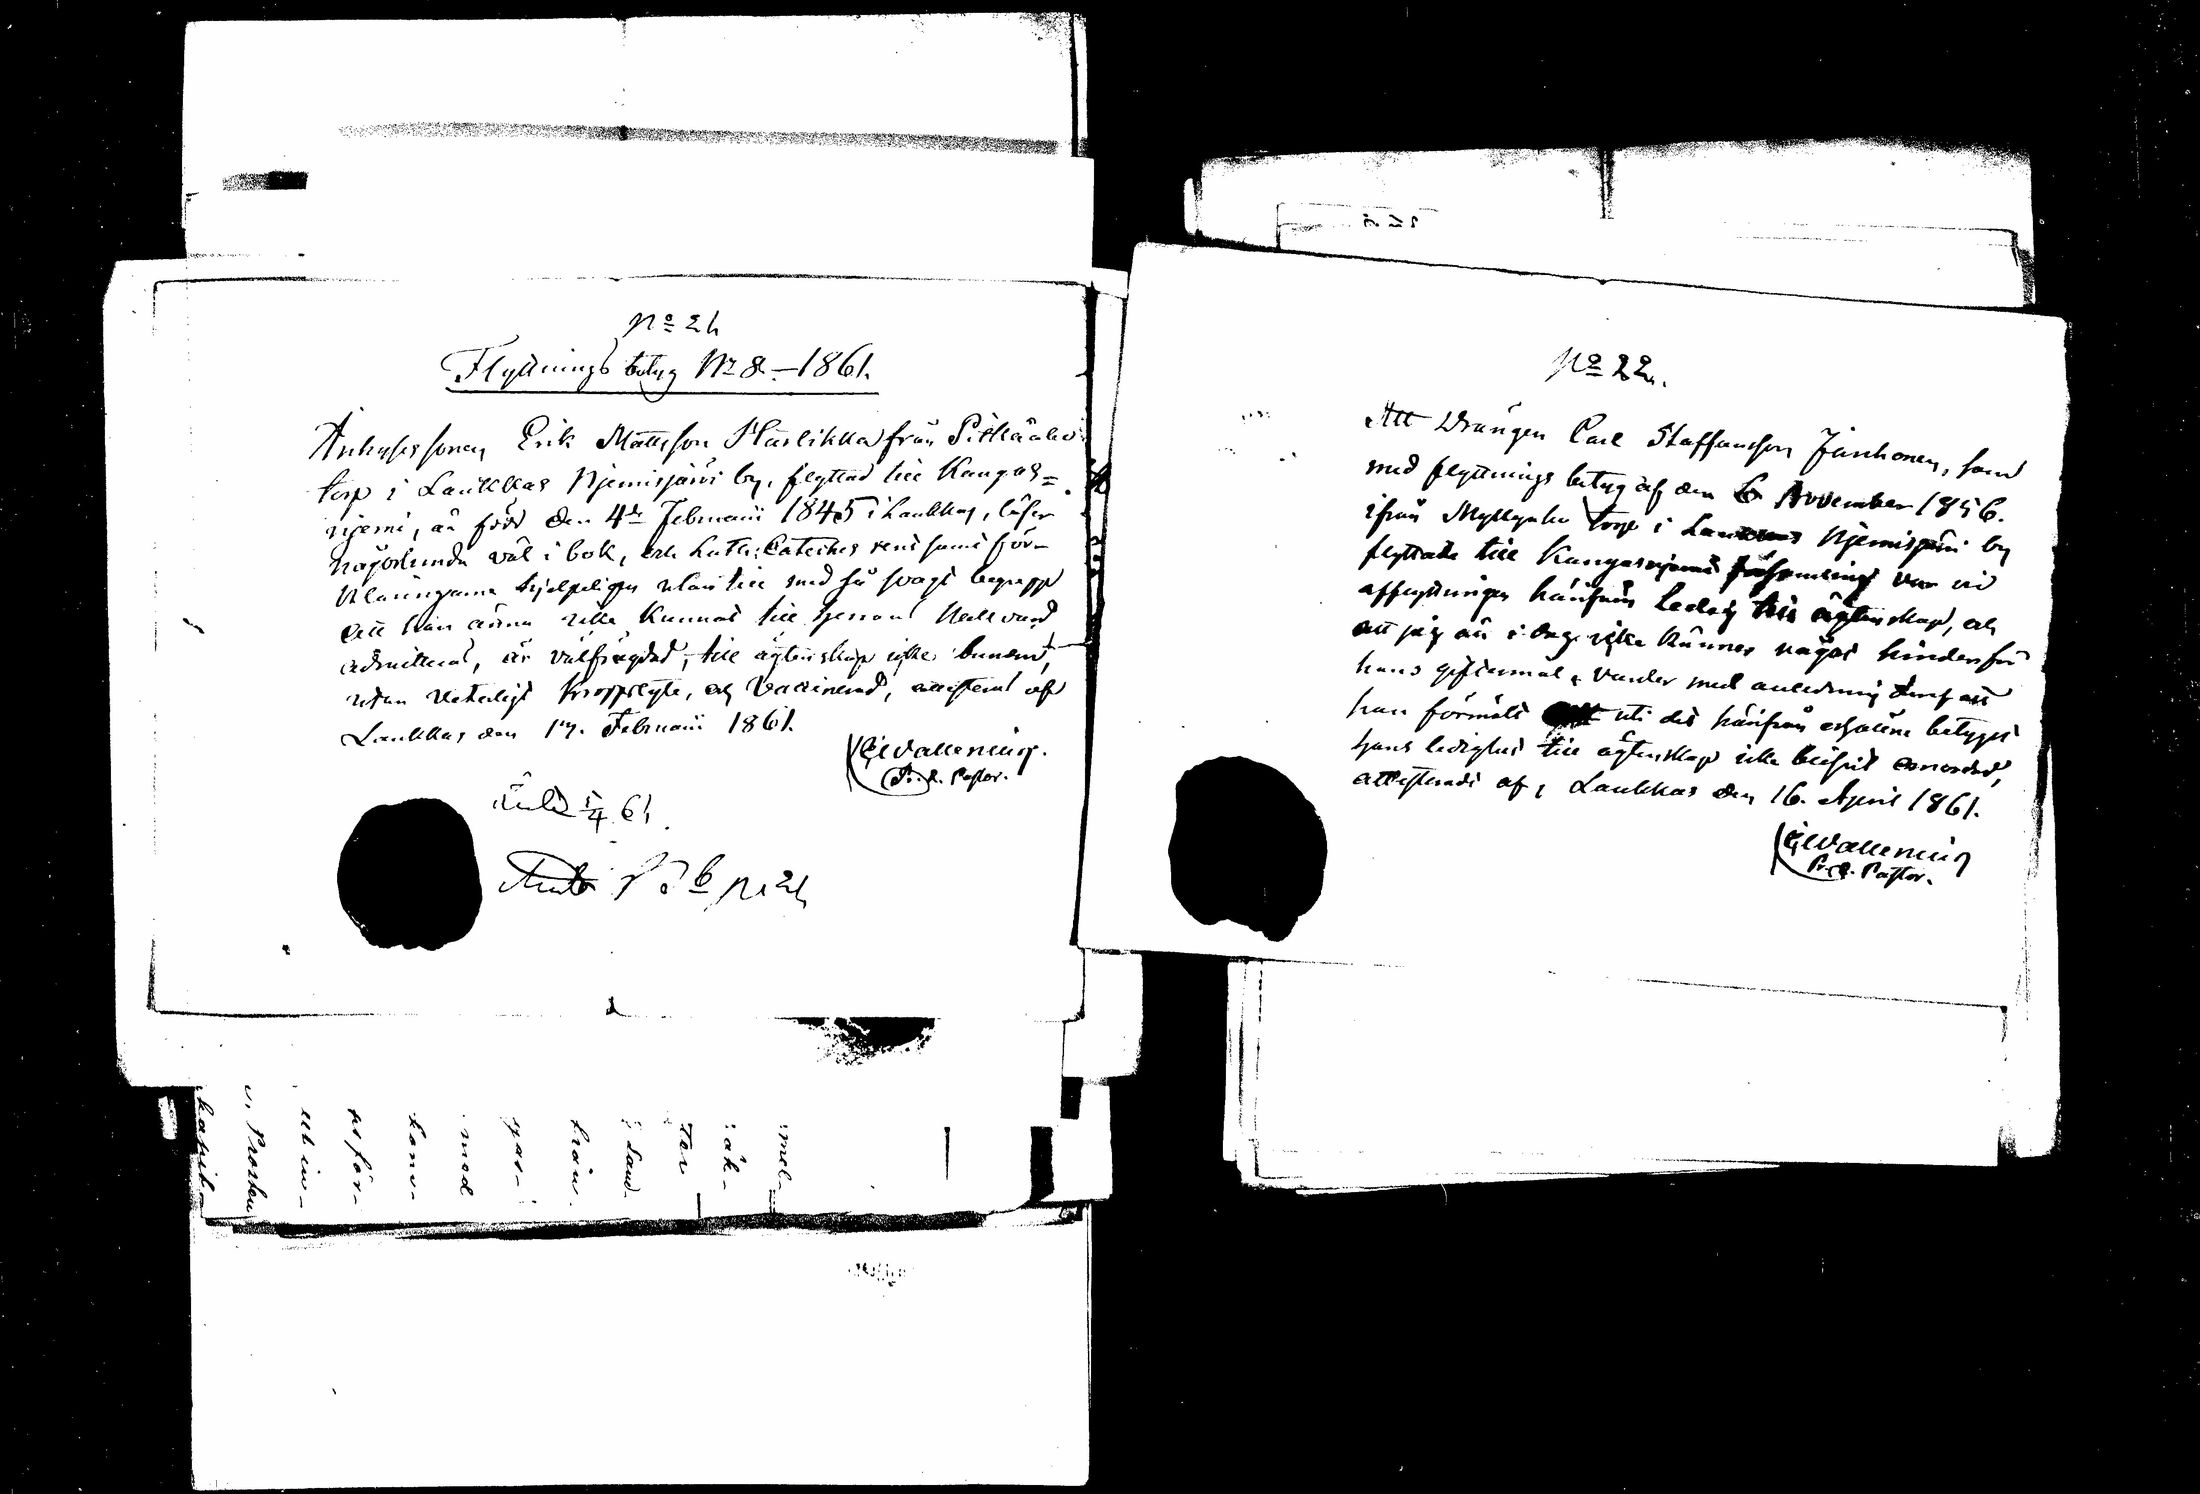 No 21
Flyttnings betyg No 8.–1861.
Enhyses sonen Erik Mattsson Harlikka från Pitkäaho
torp i Laukkas Njemisjärvi by, flyttad till Kangas=
njemi, är född den 4de Februarii 1845 i Laukkas, läser
någorlunda väl i bok, och Luth: Cateches rent samt för-
klaringarne hjelpeligen utan till med så svagt begrepp
att han ännu icke kunnat till Herrans Nattvard
admitteras, är välfrägdad, till ägtenskap icke bunden,
utan veterligt kroppslyte, och vaccinerad, attesterad af
Laukkas den 17. Februarii 1861.
G Wallenius.
Pr. o. Pastor.
5/4 61.
No 21
No 22.
Att Drängen Carl Staffansson Jäskonen, som
med flyttnings betyg af den 6 November 1856.
ifrån Myllyaho torp i Laukkas Njemisjärvi by
flyttade till Kangasnjemi församling var vid
afflyttningen härifrån Ledig till ägtenskap, och
att jag än i dag icke känner något hinder för
hans giftermål, varder med anledning deraf att
han förmält uti det härifrån erhållne betyget
hans ledighet till ägtenskap icke blifvit omordad,
attesteradt af, Laukkas den 16. April 1861.
G Wallenius
Pr. o. Pastor.
mel-
åk-
ter
i Lauk-
från
gas-
med
kans-
ns för-
v. Prosten